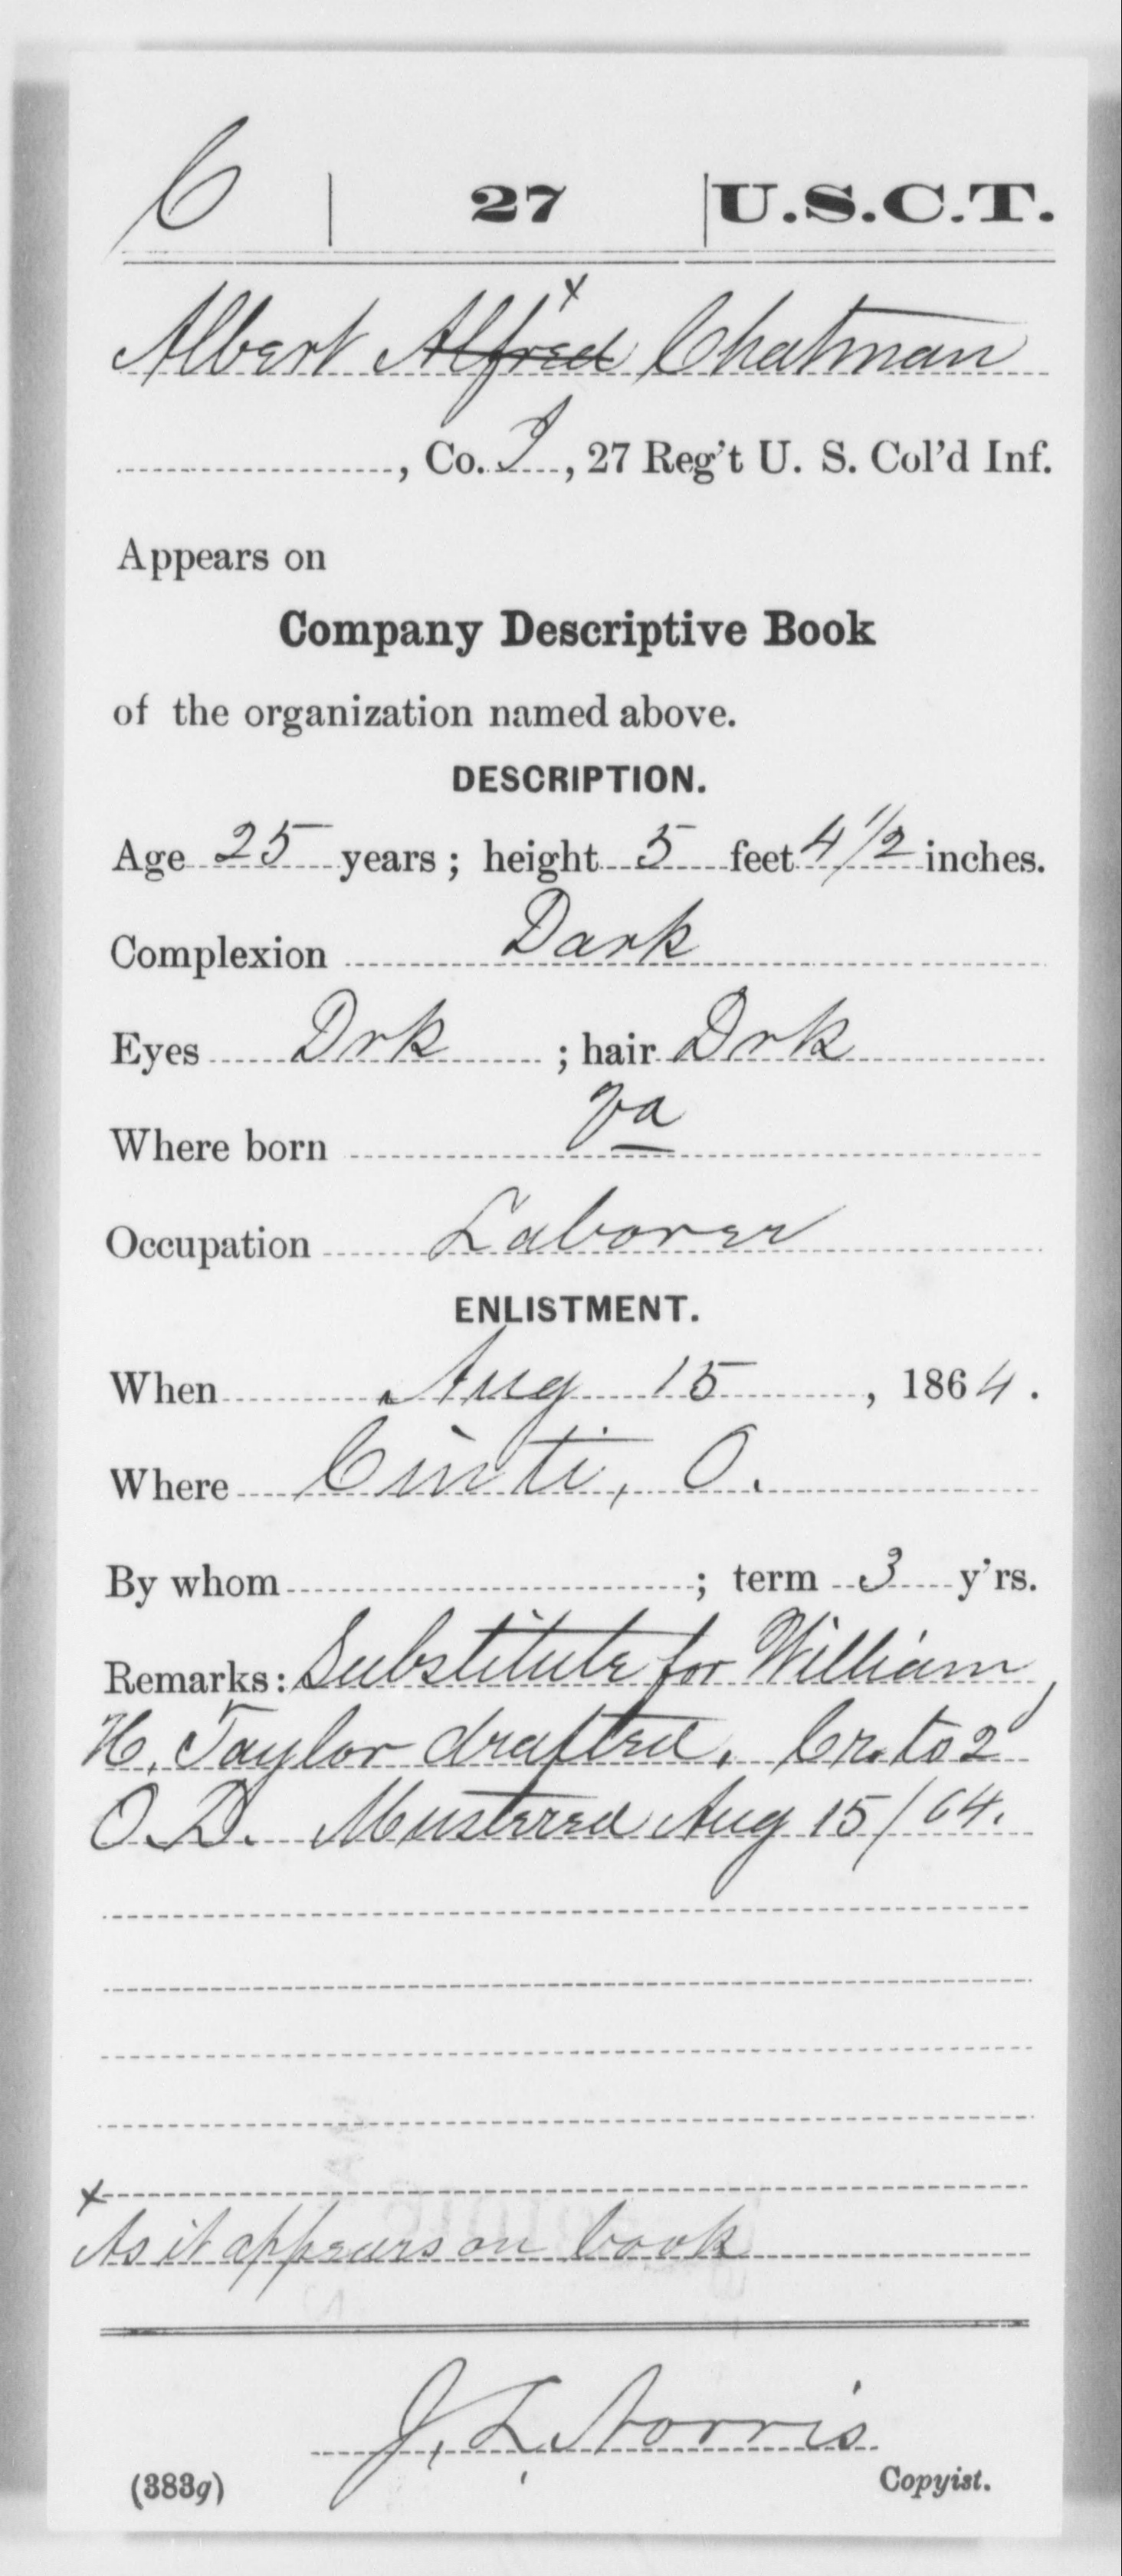 C | 27 | U.S.C.T.
Albert Alfred x Chatman
, Co. I, 27 Reg't U. S. Col'd Inf.
Appears on
Company Descriptive Book
of the organization named above.
DESCRIPTION.
Age 25 years; height 5 feet 4 1/2 inches.
Complexion Dark
Eyes Drk ; hair Drk
Where born Va
Occupation Laborer
ENLISTMENT.
When Aug 15, 1864.
Where Cinti, O.
By whom ; term 3 y'rs.
Remarks: Substitute for William
H. Taylor drafted. Cr. to 2d
O.D. Mustered Aug 15/64.
x
As it appears on book
J. L. Norris
(383g) Copyist.